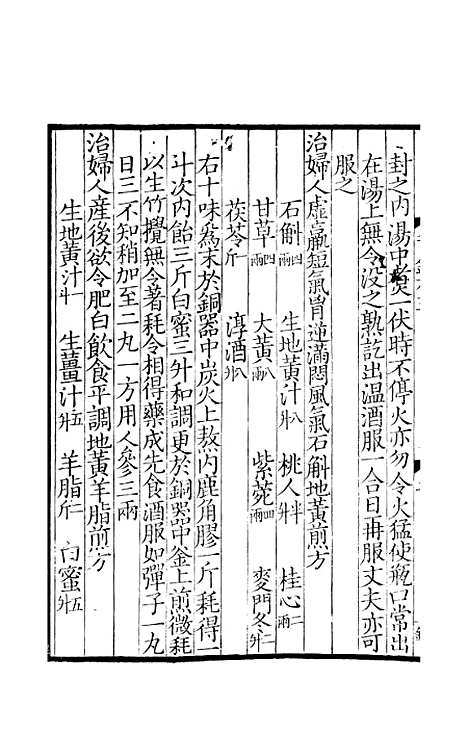 封之内湯中煑一伏時不停火亦勿令火猛使瓶口常出
在湯上無令没之熟訖出温酒服一合日再服丈夫亦可
服之
治婦人虚羸短氣胷逆滿悶風氣石斛地黄煎方
石斛四兩 生地黄汁八升 桃人半升 桂心二兩
甘草四兩 大黄八兩 紫菀四兩 麥門冬二升
茯苓一斤 淳酒八升
右十味爲末於銅器中炭火上熬内鹿角膠一斤耗得一
斗次内飴三斤白蜜三升和調更於銅器中釜上煎微耗
以生竹攪無令著耗令相得藥成先食酒服如彈子一丸
日三不知稍加至二丸一方用人參三兩
治婦人産後欲令肥白飲食平調地黄羊脂煎方
生地黄汁一斗 生薑汁五升 羊脂二斤 白蜜五升